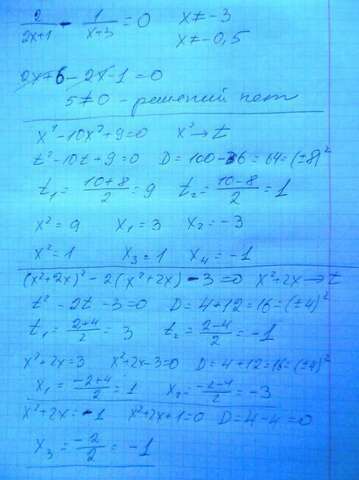 2/(2x+1) - 1/(x+3) = 0 x ≠ -3
x ≠ -0,5
2x+6-2x-1=0
5≠0 - решений нет
x⁴-10x²+9=0 x²→t
t²-10t+9=0 D=100-36=64=(±8)²
t₁=(10+8)/2=9 t₂=(10-8)/2=1
x²=9 x₁=3 x₂=-3
x²=1 x₃=1 x₄=-1
(x²+2x)²-2(x²+2x)-3=0 x²+2x→t
t²-2t-3=0 D=4+12=16=(±4)²
t₁=(2+4)/2=3 t₂=(2-4)/2=-1
x²+2x=3 x²+2x-3=0 D=4+12=16=(±4)²
x₁=(-2+4)/2=1 x₂=(-2-4)/2=-3
x²+2x=-1 x²+2x+1=0 D=4-4=0
x₃=-2/2=-1